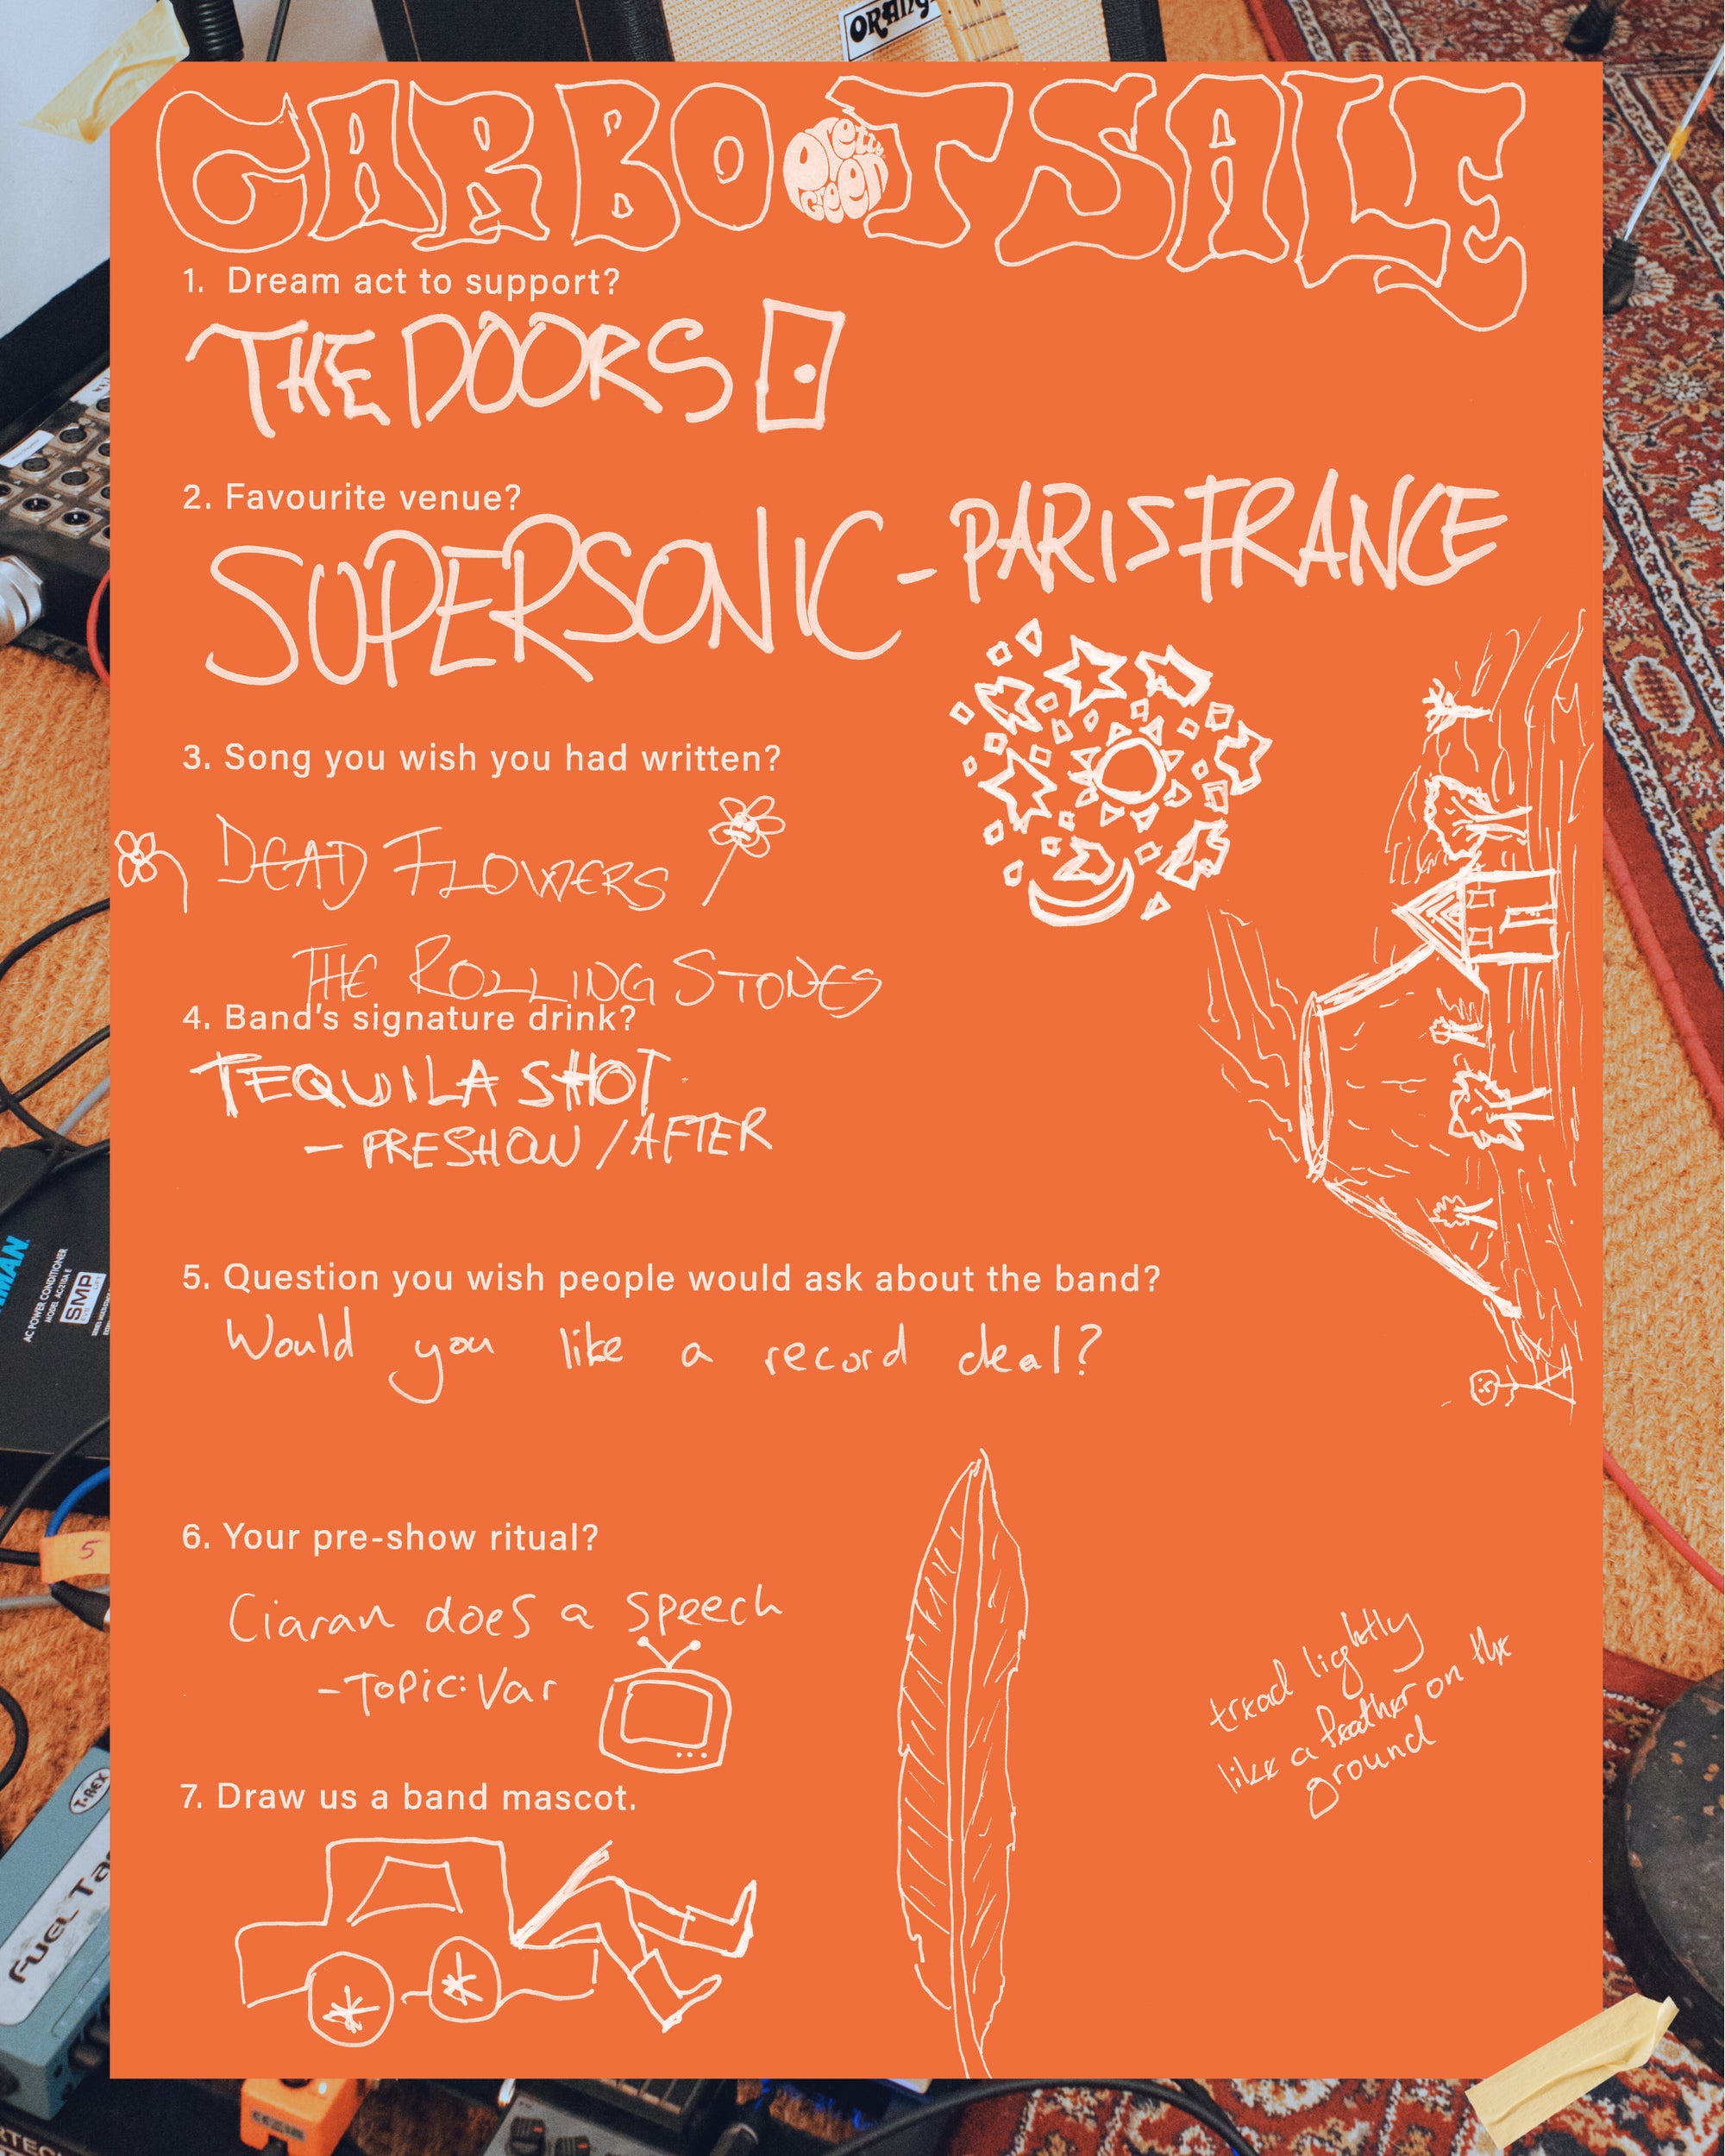 ORANG
CARBOOT SALE
Pretty Green
1. Dream act to support?
THE DOORS
2. Favourite venue?
SUPERSONIC - PARIS FRANCE
3. Song you wish you had written?
DEAD FLOWERS
THE ROLLING STONES
4. Band's signature drink?
TEQUILA SHOT
- PRESHOW / AFTER
5. Question you wish people would ask about the band?
Would you like a record deal?
6. Your pre-show ritual?
Ciaran does a speech
- Topic: Var
tread lightly
like a feather on the
ground
7. Draw us a band mascot.
MAN
AC POWER CONDITIONER
SMP
5
T-REX
FUEL TA